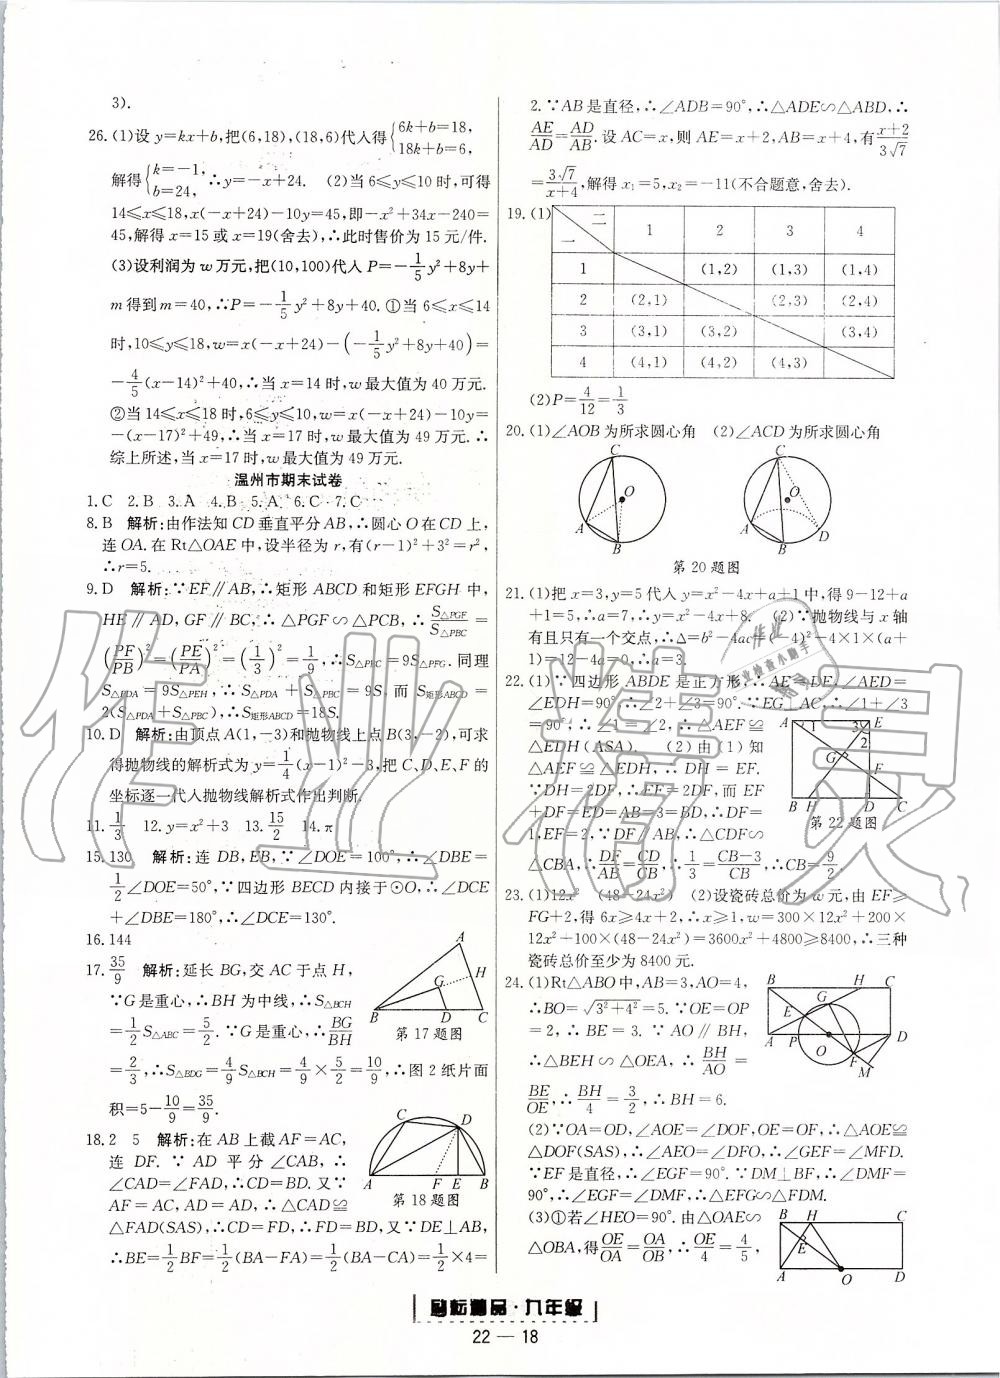 3).
26.(1)设 y=kx+b,把(6,18),(18,6)代入得{6k+b=18,
18k+b=6,
解得{k=-1,
b=24,
∴y=-x+24. (2)当 6≤y≤10 时,可得
14≤x≤18,x(-x+24)-10y=45,即-x²+34x-240=
45,解得 x=15或 x=19(舍去),∴此时售价为 15 元/件.
(3)设利润为 w 万元,把(10,100)代入 P=-1/5y²+8y+
m 得到 m=40,∴P=-1/5y²+8y+40.①当 6≤x≤14
时,10≤y≤18,w=x(-x+24)-(-1/5y²+8y+40)=
-4/5(x-14)²+40,∴当 x=14 时,w 最大值为 40 万元.
②当 14≤x≤18 时,6≤y≤10,w=x(-x+24)-10y=
-(x-17)²+49,∴当 x=17 时,w 最大值为 49 万元.∴
综上所述,当 x=17 时,w 最大值为 49 万元.
温州市期末试卷
1.C 2.B 3.A 4.B 5.A 6.C 7.C
8.B 解析:由作法知 CD 垂直平分 AB,∴圆心 O 在 CD 上,
连 OA.在 Rt△OAE 中,设半径为 r,有(r-1)²+3²=r²,
∴r=5.
9.D 解析:∵EF∥AB,∴矩形 ABCD 和矩形 EFGH 中,
HE∥AD,GF∥BC,∴△PGF∽△PCB,∴S△PGF/S△PBC=
(PF/PB)²=(PE/PA)²=(1/3)²=1/9,∴S△PBC=9S△PFG.同理
S△PDA=9S△PEH,∴S△PDA+S△PBC=9S,而 S矩形ABCD=
2(S△PDA+S△PBC),∴S矩形ABCD=18S.
10.D 解析:由顶点 A(1,-3)和抛物线上点 B(3,-2),可求
得抛物线的解析式为 y=1/4(x-1)²-3,把 C、D、E、F 的
坐标逐一代入抛物线解析式作出判断.
11.1/3 12.y=x²+3 13.15/2 14.π
15.130 解析:连 DB,EB,∵∠DOE=100°,∴∠DBE=
1/2∠DOE=50°,∵四边形 BECD 内接于⊙O,∴∠DCE
+∠DBE=180°,∴∠DCE=130°.
16.144
17.35/9 解析:延长 BG,交 AC 于点 H,
∵G是重心,∴BH 为中线,∴S△BCH
=1/2S△ABC=5/2.∵G是重心,∴BG/BH
=2/3,∴S△BDG=4/9S△BCH=4/9×5/2=10/9,∴图 2 纸片面
积=5-10/9=35/9.
A
G
H
B
D
C
第 17 题图
18.2 5 解析:在 AB 上截 AF=AC,
连 DF. ∵ AD 平分 ∠CAB, ∴
∠CAD=∠FAD,∴CD=BD.又∵
AF=AC,AD=AD,∴△CAD≌
△FAD(SAS),∴CD=FD,∴FD=BD,又∵DE⊥AB,
∴BE=1/2BF=1/2(BA-FA)=1/2(BA-CA)=1/2×4=
C
D
A
F E
B
第 18 题图
2.∵AB 是直径,∴∠ADB=90°,∴△ADE∽△ABD,∴
AE/AD=AD/AB.设 AC=x,则 AE=x+2,AB=x+4,有x+2/3√7
=3√7/x+4,解得 x₁=5,x₂=-11(不合题意,舍去).
19.(1)
二
一
1 2 3 4
1 (1,2) (1,3) (1,4)
2 (2,1) (2,3) (2,4)
3 (3,1) (3,2) (3,4)
4 (4,1) (4,2) (4,3)
(2)P=4/12=1/3
20.(1)∠AOB为所求圆心角 (2)∠ACD为所求圆心角
C
O
A
B
C
O
A
B
D
第 20 题图
21.(1)把 x=3,y=5 代入 y=x²-4x+a+1 中,得 9-12+a
+1=5,∴a=7,∴y=x²-4x+8. (2)∵抛物线与 x 轴
有且只有一个交点,∴Δ=b²-4ac=(-4)²-4×1×(a+
1)=12-4a=0,∴a=3.
22.(1)∵四边形 ABDE 是正方形,∴AE=DE,∠AED=
∠EDH=90°,∴∠2+∠3=90°.∵EG⊥AC,∴∠1+∠3
=90°,∴∠1=∠2,∴△AEF≌
△EDH(ASA). (2)由(1)知
△AEF≌△EDH,∴DH=EF.
∵DH=2DF,∴EF=2DF,而 EF
+DF=ED=AB=3=BD,∴DF=
1,EF=2,∵DF∥AB,∴△CDF∽
△CBA,∴DF/AB=CD/CB,∴1/3=CB-3/CB,∴CB=9/2.
A
1
3
E
2
G
F
B
H
D
C
第 22 题图
23.(1)12x² (48-24x²) (2)设瓷砖总价为 w 元,由 EF≥
FG+2,得 6x≥4x+2,∴x≥1,w=300×12x²+200×
12x²+100×(48-24x²)=3600x²+4800≥8400,∴三种
瓷砖总价至少为 8400 元.
24.(1)Rt△ABO 中,AB=3,AO=4,
∴BO=√3²+4²=5.∵OE=OP
=2,∴BE=3. ∵AO∥BH,
∴△BEH∽△OEA,∴BH/AO=
BE/OE,∴BH/4=3/2,∴BH=6.
B
H
C
G
E
A
P
O
D
F
M
(2)∵OA=OD,∠AOE=∠DOF,OE=OF,∴△AOE≌
△DOF(SAS),∴∠AEO=∠DFO,∴∠GEF=∠MFD.
∵EF 是直径,∴∠EGF=90°.∵DM⊥BF,∴∠DMF=
90°,∴∠EGF=∠DMF,∴△EFG∽△FDM.
(3)①若∠HEO=90°.由△OAE∽
△OBA,得OE/OA=OA/OB,∴OE/4=4/5,
B
H
C
E
A
O
D
励标精品·九年级
22 — 18
作业精灵